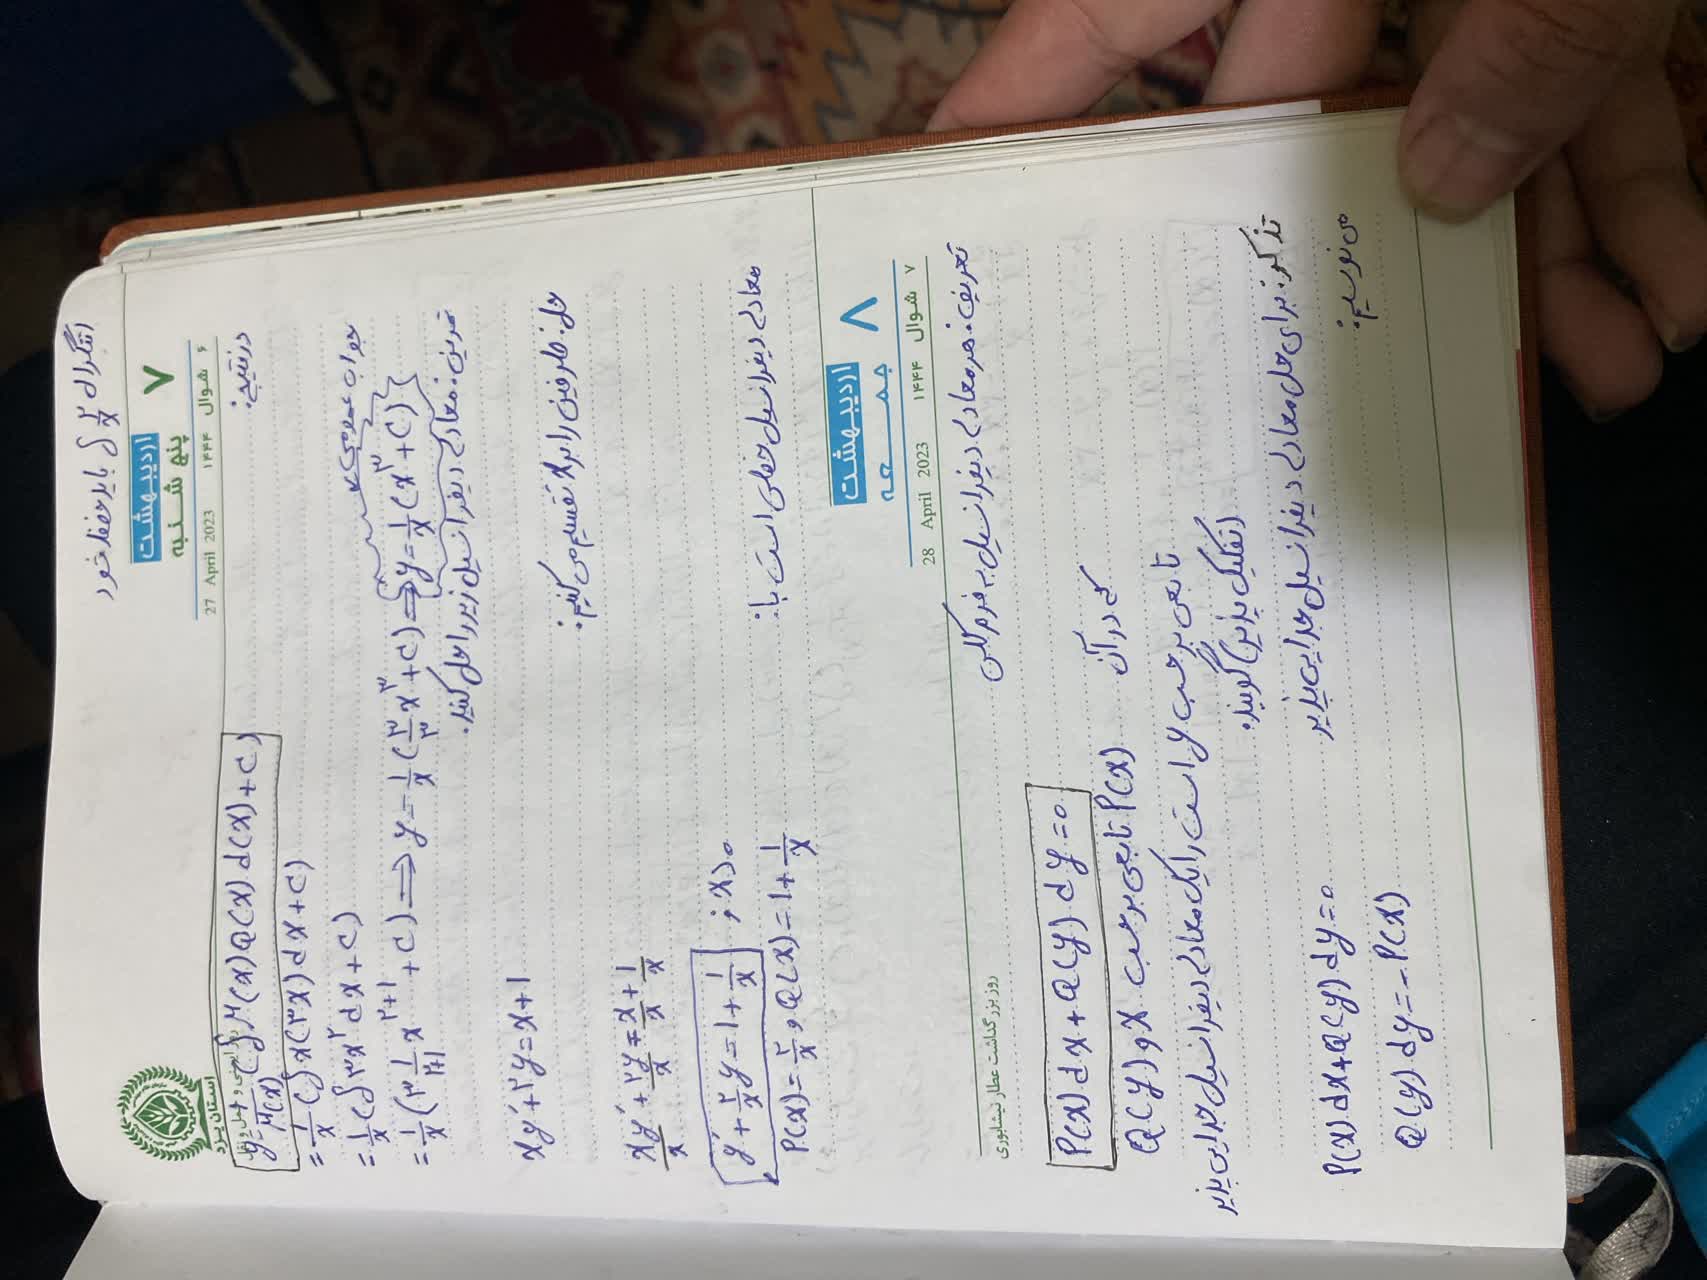 انتگرال ∫ ۲/x باید حفظ شود
اردیبهشت
پنج شنبه
۷
27 April 2023 ۱۴۴۴ شوال ۶
استان یزد
در نتیجه:
y = 1/μ(x) (∫ μ(x) Q(x) d(x) + C)
= 1/x (∫ x(۳x) dx + C)
= 1/x (∫ ۳x^۲ dx + C) جواب عمومی
= 1/x (۳ 1/۲+1 x^۲+1 + C) ⟹ y = 1/x (۳/۳ x^۳ + C) ⟹ y = 1/x (x^۳ + C)
تمرین: معادله دیفرانسیل زیر را حل کنید.
xy′ + ۲y = x + 1
حل: طرفین را بر x تقسیم می کنیم:
xy′/x + ۲y/x = x/x + 1/x
y′ + ۲/x y = 1 + 1/x ; x>0
معادله دیفرانسیل خطی است با:
P(x) = ۲/x و Q(x) = 1 + 1/x
اردیبهشت
جمعه
۸
28 April 2023 ۱۴۴۴ شوال ۷
روز بزرگداشت عطار نیشابوری
تعریف: هر معادله دیفرانسیل به فرم کلی
P(x) dx + Q(y) dy = 0
که در آن
P(x) تابعی بر حسب x و Q(y)
تابعی بر حسب y است را یک معادله دیفرانسیل جدایی پذیر
(تفکیک پذیر) گویند.
تذکر: برای حل معادله دیفرانسیل جدایی پذیر
P(x) dx + Q(y) dy = 0
می نویسیم:
Q(y) dy = - P(x)